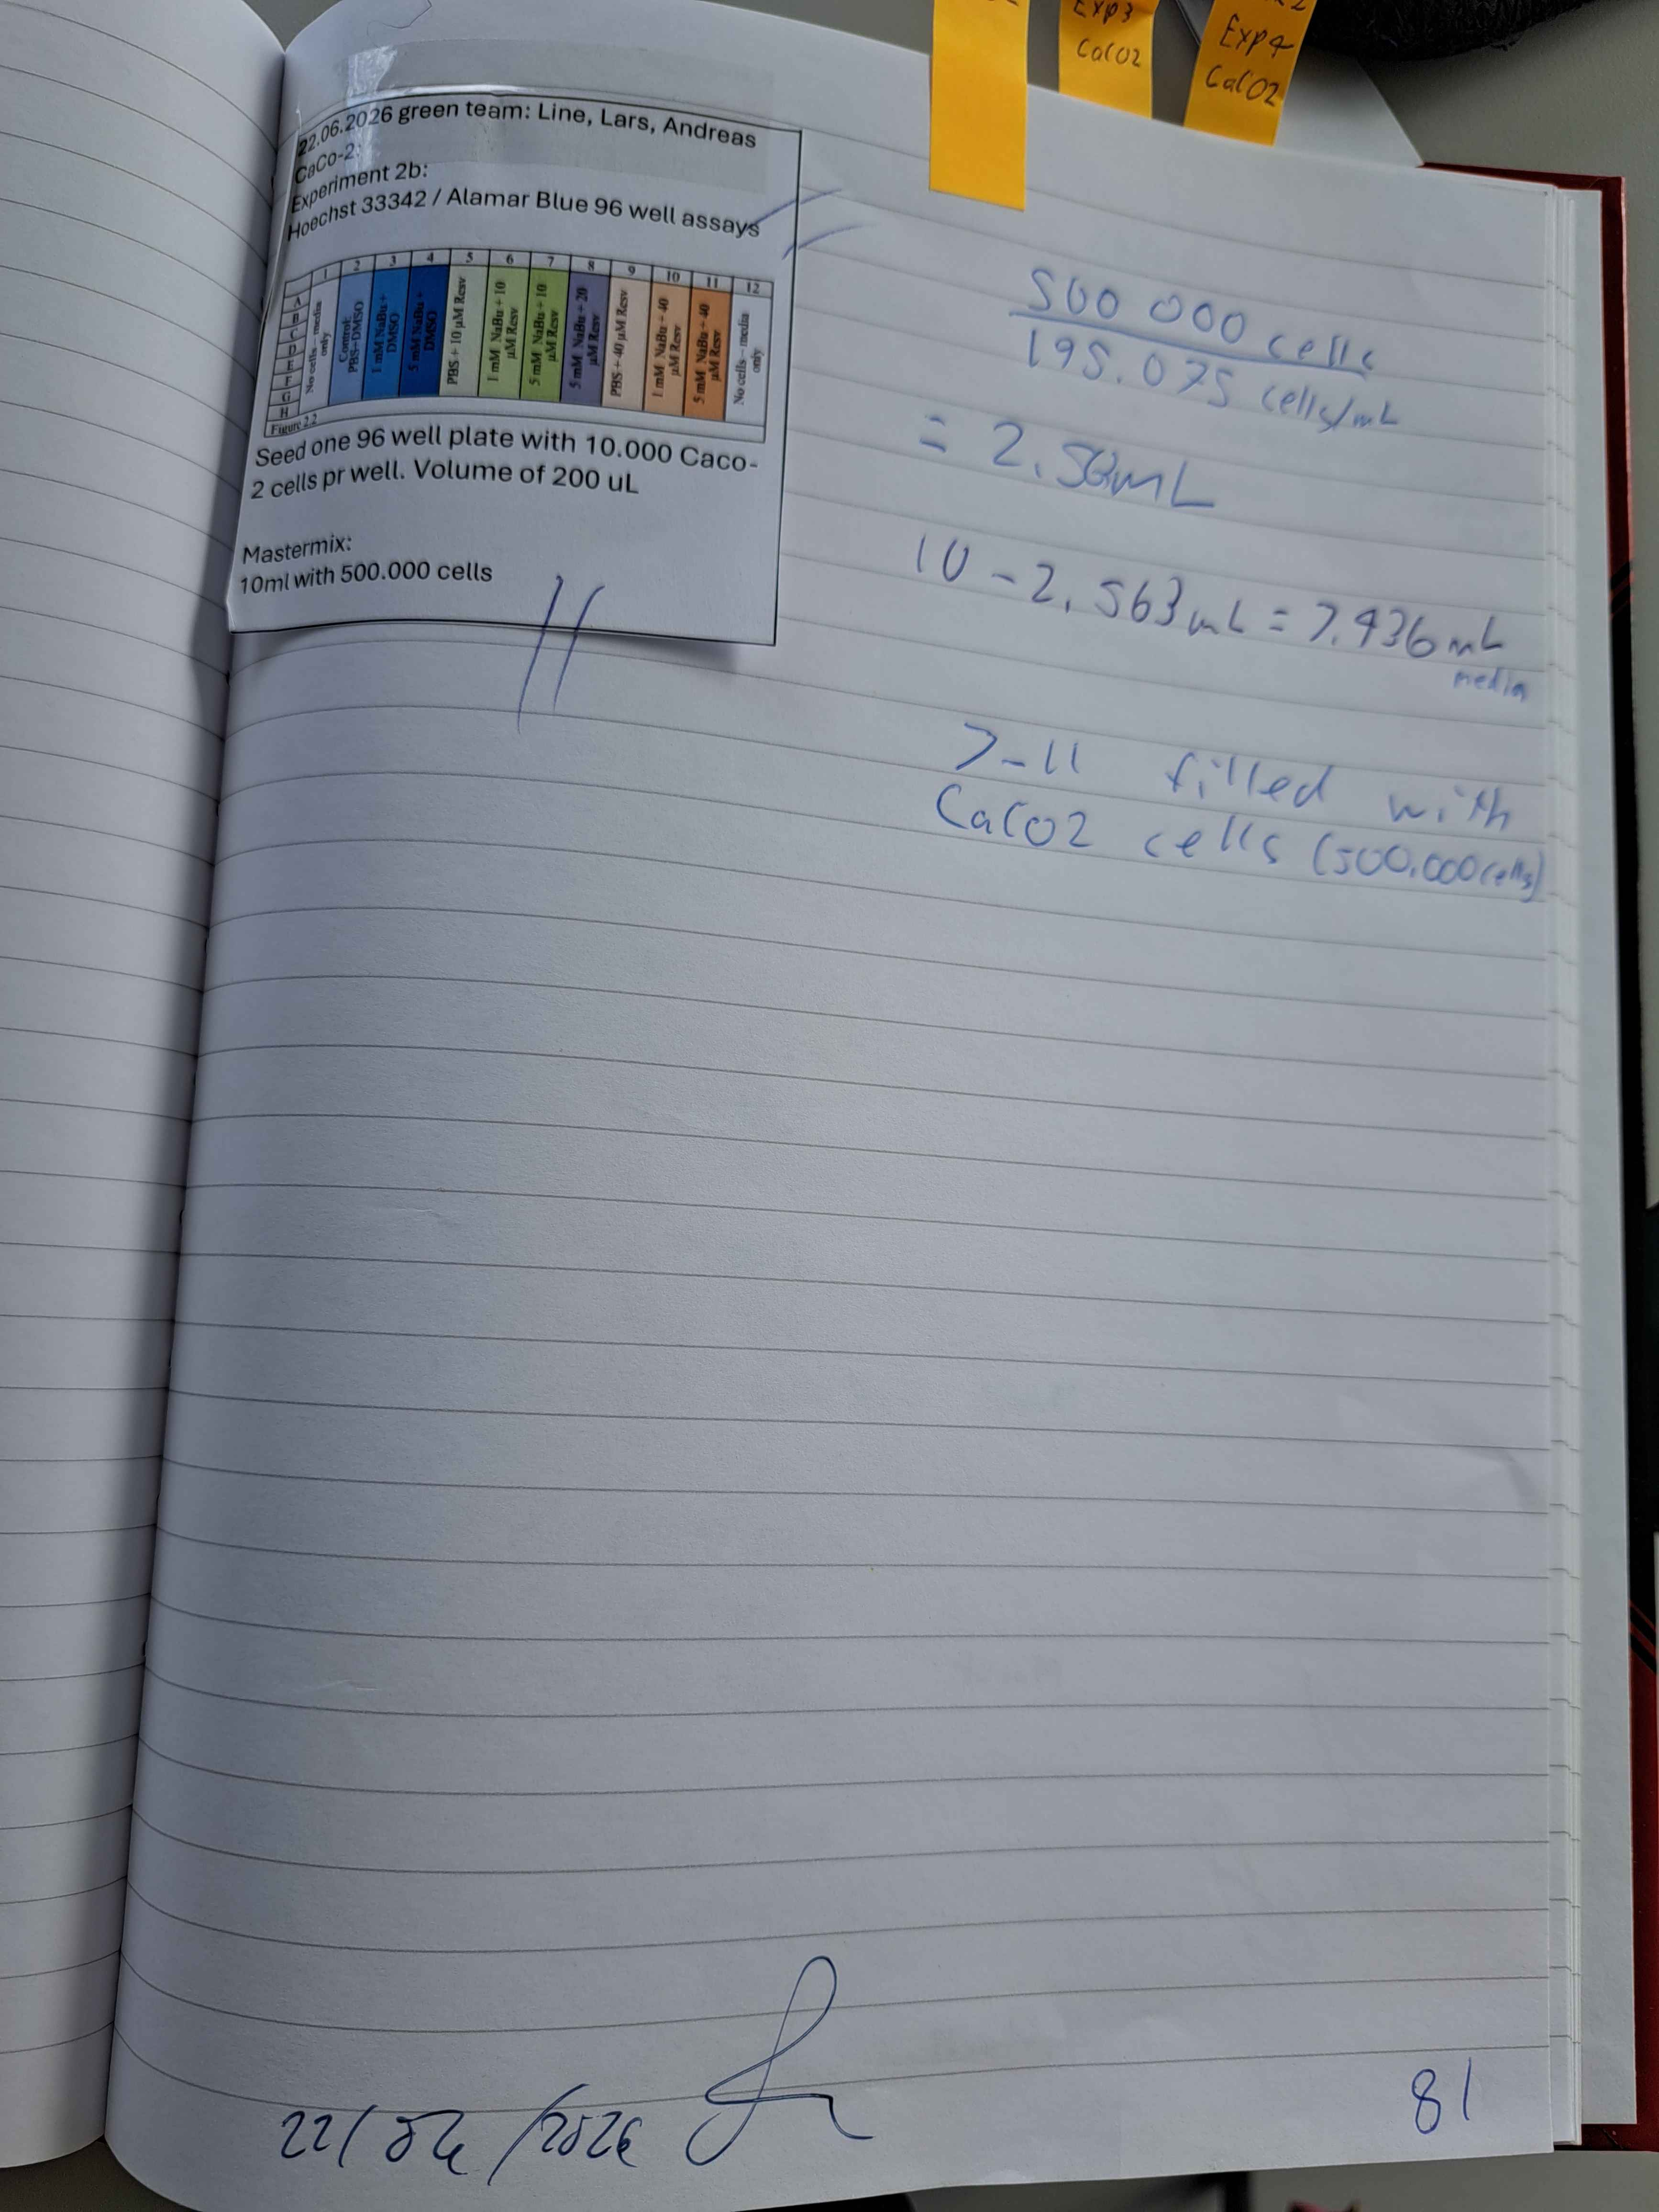 Exp3
CaCO2
Exp4
CaCO2
22.06.2026 green team: Line, Lars, Andreas
CaCo-2:
Experiment 2b:
Hoechst 33342 / Alamar Blue 96 well assays
1 2 3 4 5 6 7 8 9 10 11 12
A
B
C
D
E
F
G
H
No cells – media only
Control: PBS+DMSO
1 mM NaBu + DMSO
5 mM NaBu + DMSO
PBS + 10 µM Resv
1 mM NaBu + 10 µM Resv
5 mM NaBu + 10 µM Resv
5 mM NaBu + 20 µM Resv
PBS + 40 µM Resv
1 mM NaBu + 40 µM Resv
5 mM NaBu + 40 µM Resv
No cells – media only
Figure 2.2
Seed one 96 well plate with 10.000 Caco-
2 cells pr well. Volume of 200 uL
Mastermix:
10ml with 500.000 cells
500 000 cells
195.075 cells/mL
= 2.56mL
10 - 2.563mL = 7.436mL
media
7-11 filled with
CaCO2 cells (500.000cells)
22/ /2026
81